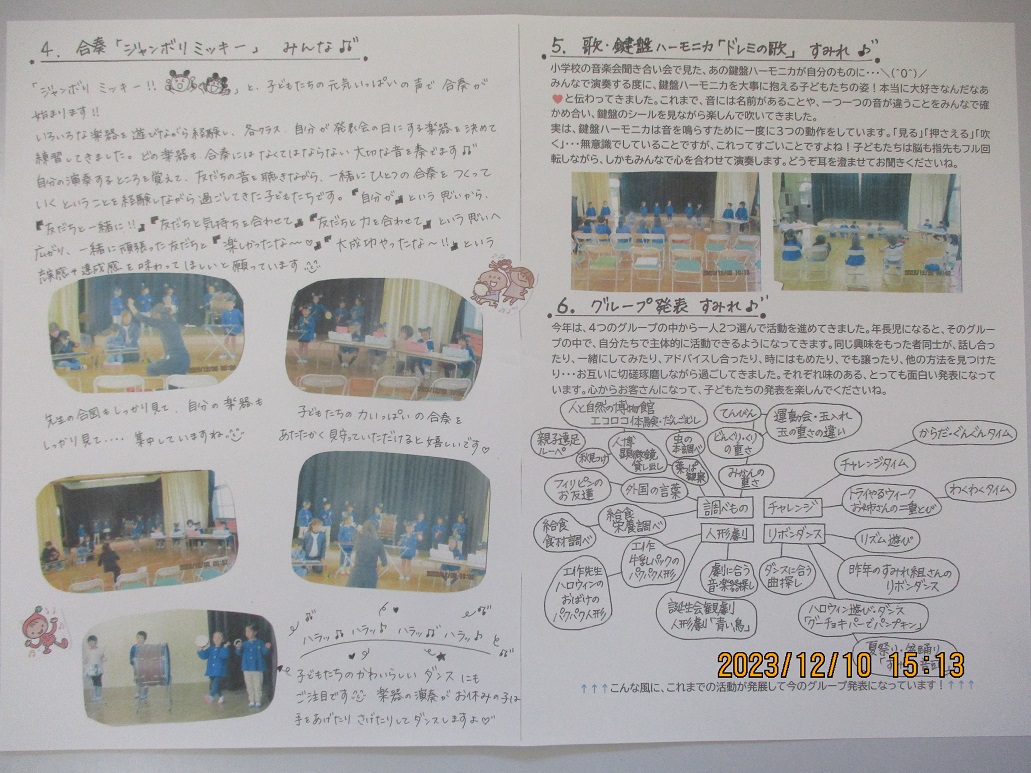 4. 合奏「ジャンボリミッキー」 みんな
「ジャンボリ ミッキー!! と、子どもたちの元気いっぱいの声で合奏が
始まります!!
いろいろな楽器を遊びながら経験し、各クラス、自分が発表会の日にする楽器を決めて
練習してきました。どの楽器も、合奏にはなくてはならない大切な音を奏でます
自分の演奏するところを覚えて、友だちの音を聴きながら、一緒にひとつの合奏をつくって
いくということを経験しながら過ごしてきた子どもたちです。『自分が』という思いから、
『友だちと一緒に!!』『友だちと気持ちを合わせて』『友だちと力を合わせて』という思いへ
広がり、一緒に頑張った友だちと『楽しかったな〜♡』『大成功やったな〜!!』という
感や達成感を味わってほしいと願っています
先生の合図をしっかり見て、自分の楽器も
しっかり見て‥‥ 集中していますね
子どもたちの力いっぱいの合奏を
あたたかく見守っていただけると嬉しいです♡
ハラッ♪ ハラッ♪ ハラッ♪ ハラッ♪ と
子どもたちのかわいらしいダンスにも
ご注目です 楽器の演奏がお休みの子は
手をあげたり さげたりしてダンスしますよ♡
5. 歌・鍵盤ハーモニカ「ドレミの歌」 すみれ
小学校の音楽会聞き合い会で見た、あの鍵盤ハーモニカが自分のものに・・・＼(^0^)／
みんなで演奏する度に、鍵盤ハーモニカを大事に抱える子どもたちの姿！本当に大好きなんだなあ
♥と伝わってきました。これまで、音には名前があることや、一つ一つの音が違うことをみんなで確
かめ合い、鍵盤のシールを見ながら楽しんで吹いてきました。
実は、鍵盤ハーモニカは音を鳴らすために一度に３つの動作をしています。「見る」「押さえる」「吹
く」・・・無意識でしていることですが、これってすごいことですよね！子どもたちは脳も指先もフル回
転しながら、しかもみんなで心を合わせて演奏します。どうぞ耳を澄ませてお聞きくださいね。
6. グループ発表 すみれ
今年は、４つのグループの中から一人２つ選んで活動を進めてきました。年長児になると、そのグルー
プの中で、自分たちで主体的に活動できるようになってきます。同じ興味をもった者同士が、話し合っ
たり、一緒にしてみたり、アドバイスし合ったり、時にはもめたり、でも譲ったり、他の方法を見つけた
り・・・お互いに切磋琢磨しながら過ごしてきました。それぞれ味のある、とっても面白い発表になって
います。心からお客さんになって、子どもたちの発表を楽しんでくださいね。
人と自然の博物館
エコロコ体験・だんごむし
てんびん
運動会・玉入れ
玉の重さの違い
からだ・ぐんぐんタイム
親子遠足
ルーペ
秋見つけ
人博
顕微鏡
貸し出し
虫の
本調べ
葉っぱ
観察
どんぐり・くり
の重さ
みかんの
重さ
チャレンジタイム
わくわくタイム
フィリピンの
お友達
外国の言葉
調べもの
チャレンジ
トライやるウィーク
お姉さんの二重とび
給食
食材調べ
給食
栄養調べ
人形劇
リボンダンス
リズム遊び
工作
牛乳パックの
パクパク人形
工作先生
ハロウィンの
おばけの
パクパク人形
劇に合う
音・楽器探し
ダンスに合う
曲探し
昨年のすみれ組さんの
リボンダンス
誕生会観劇
人形劇「青い鳥」
ハロウィン遊び・ダンス
「グーチョキパーでパンプキン」
夏祭り・盆踊り
2023/12/10 15:13
↑↑↑こんな風に、これまでの活動が発展して今のグループ発表になっています！↑↑↑